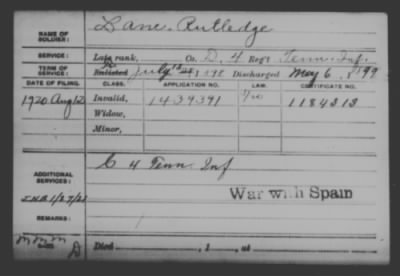 NAME OF SOLDIER: Lane, Rutledge
SERVICE: Late rank, Co. D, 4 Reg't Tenn. Inf.
TERM OF SERVICE: Enlisted July 1898 Discharged May 6, 1899
DATE OF FILING. CLASS. APPLICATION NO. LAW. CERTIFICATE NO.
1920 Aug 12 Invalid, 1439391 1184313
Widow,
Minor,
C 4 Tenn. Inf
ADDITIONAL SERVICES:
War with Spain
REMARKS:
Died , 1 , at